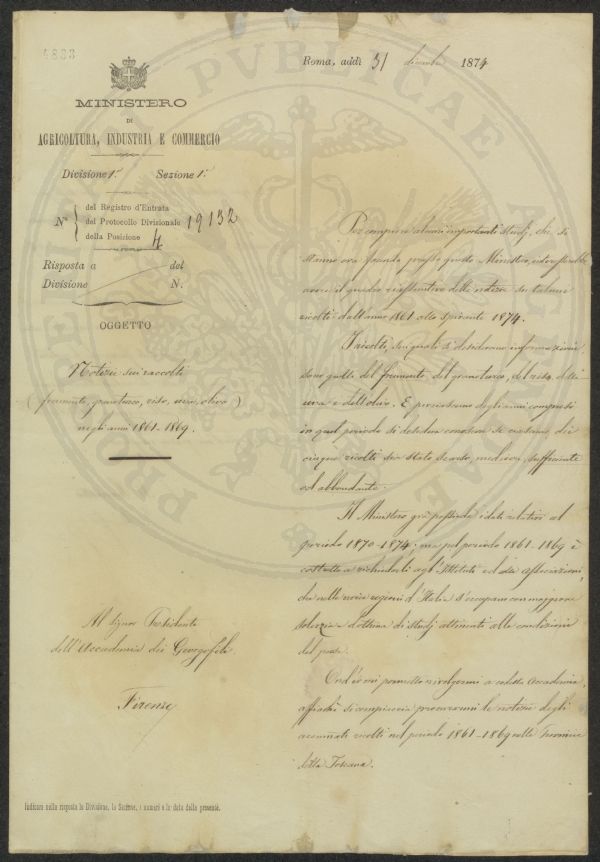 4833
Roma, addì 31 dicembre 1874
MINISTERO
DI
AGRICOLTURA, INDUSTRIA E COMMERCIO
Divisione 1ª Sezione 1ª
N° del Registro d'Entrata
del Protocollo Divisionale 19132
della Posizione 4
Risposta a del
Divisione N.
OGGETTO
Notizie sui raccolti
(frumento, granoturco, riso, uva, olivo)
negli anni 1861-1869.
Al Signor Presidente
dell'Accademia dei Georgofili
Firenze
Per compiere alcuni importanti studj, che si
stanno ora facendo presso questo Ministero,
avere il quadro riassuntivo delle notizie su taluni
ricolti dall'anno 1861 allo spirante 1874.
I ricolti, sui quali si desiderano informazioni
sono quelli del frumento, del granoturco, del riso, dell'
uva e dell'olivo. E per ciascuno degli anni compresi
in quel periodo si desidera conoscere se ciascuno dei
cinque ricolti sia stato scarso, mediocre, sufficiente
od abbondante.
Il Ministero già possiede i dati relativi al
periodo 1870-1874; ma pel periodo 1861-1869 è
costretto a richiederli agl'Istituti ed alle Associazioni,
che nelle varie regioni d'Italia s'occupano con maggiore
solerzia e dottrina di studj attinenti alle condizioni
del paese.
Ond'è ch'io mi permetto rivolgermi a codesta Accademia,
affinchè si compiaccia procurarmi le notizie degli
accennati ricolti nel periodo 1861-1869 nelle Provincie
della Toscana.
Indicare nella risposta la Divisione, la Sezione, i numeri e la data della presente.